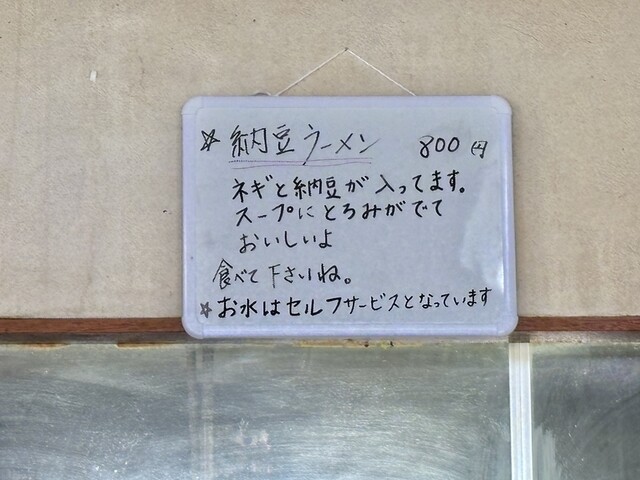 ☆ 納豆ラーメン 800円
ネギと納豆が入ってます。
スープにとろみがでて
おいしいよ
食べて下さいね。
☆お水はセルフサービスとなっています